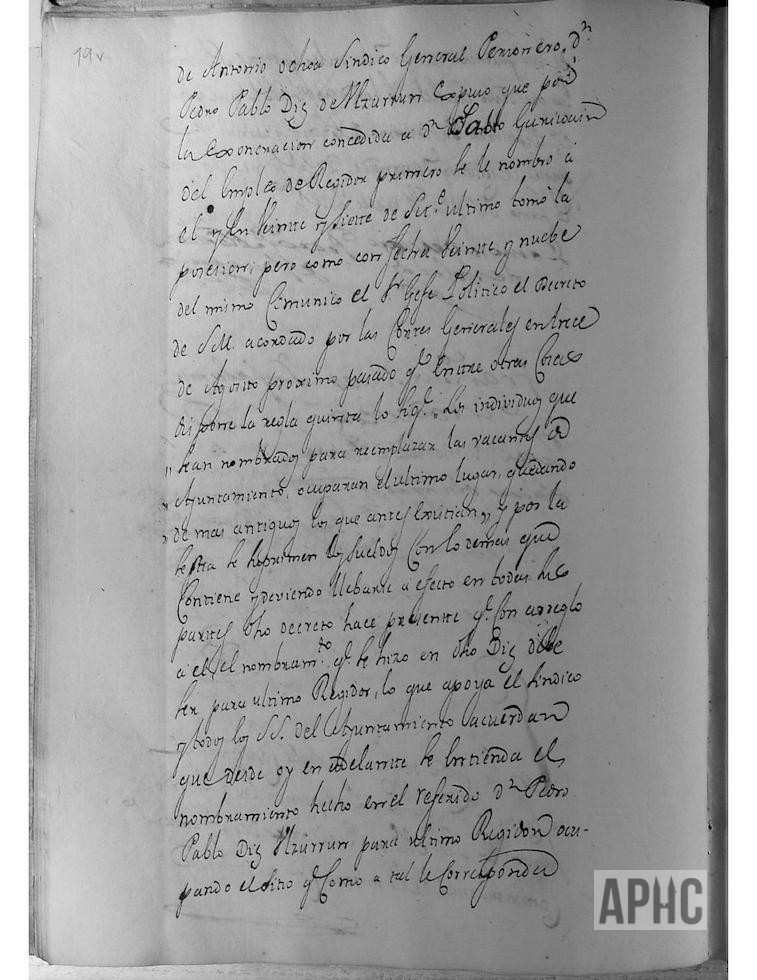 19v
de Antonio ochoa Sindico General Personero. dn
Pedro Pablo Diez de Ulzurrun Expuso que por
la exoneracion concedida a dn Pablo
del Empleo de Regidor primero se le nombro a
el y en Veinte y Siette de Set.e ultimo tomò la
posesion; pero como con fecha Veinte y nuebe
del mismo Comunico el Sr Gefe Politico el Decreto
de S.M. acordado por las Cortes Generales en trece
de Agosto proximo pasado q.e entre otras Cosas
dispone la regla quinta lo sig.e "Los individuos que
" sean nombrados para reemplazar las vacantes de
" Ayuntamiento, ocuparan el ultimo lugar, quedando
" de mas antiguos los que antes Existian," y por la
se suprimen los sueldos Con lo demas que
Contiene y deviendo llebarse a efecto en todas sus
partes dho decreto hace presente q.e Con arreglo
a el, el nombram.to q.e se hizo en dho Diez debe
ser para ultimo Regidor, lo que apoya el Sindico
y todos los SS. del Ayuntamiento acuerdan
que desde oy en adelante se entienda el
nombramiento hecho en el referido dn Pedro
Pablo Diez Ulzurrun para ultimo Regidor ocu-
pando el sitio q.e Como a tal le Corresponda
APHC